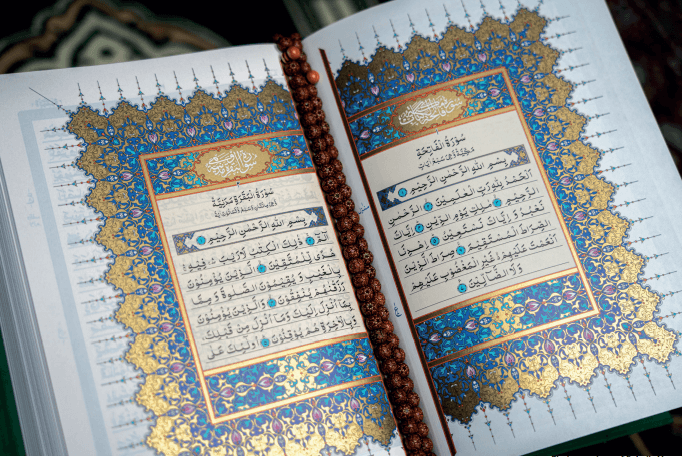 سُورَةُ الْفَاتِحَةِ
مَكِّيَّةٌ وَهِيَ سَبْعُ آيَاتٍ
بِسْمِ اللهِ الرَّحْمٰنِ الرَّحِيمِ ١
اَلْحَمْدُ لِلّٰهِ رَبِّ الْعٰلَمِينَ ٢ الرَّحْمٰنِ
الرَّحِيمِ ٣ مٰلِكِ يَوْمِ الدِّينِ ٤ اِيَّاكَ
نَعْبُدُ وَ اِيَّاكَ نَسْتَعِينُ ٥ اِهْدِنَا
الصِّرَاطَ الْمُسْتَقِيمَ ٦ صِرَاطَ الَّذِينَ
اَنْعَمْتَ عَلَيْهِمْ غَيْرِ الْمَغْضُوبِ عَلَيْهِمْ
وَلَا الضَّالِّينَ ٧
سُورَةُ الْبَقَرَةِ مَدَنِيَّةٌ
بِسْمِ اللهِ الرَّحْمٰنِ الرَّحِيمِ
الٓمٓ ١ ذٰلِكَ الْكِتٰبُ لَا رَيْبَ فِيهِ
هُدًى لِلْمُتَّقِينَ ٢ الَّذِينَ يُؤْمِنُونَ
بِالْغَيْبِ وَ يُقِيمُونَ الصَّلٰوةَ وَ مِمَّا
رَزَقْنٰهُمْ يُنْفِقُونَ ٣ وَالَّذِينَ يُؤْمِنُونَ
بِمَا اُنْزِلَ اِلَيْكَ وَمَا اُنْزِلَ مِنْ قَبْلِكَ
وَبِالْاٰخِرَةِ هُمْ يُوقِنُونَ ٤ اُولٰئِكَ عَلٰى